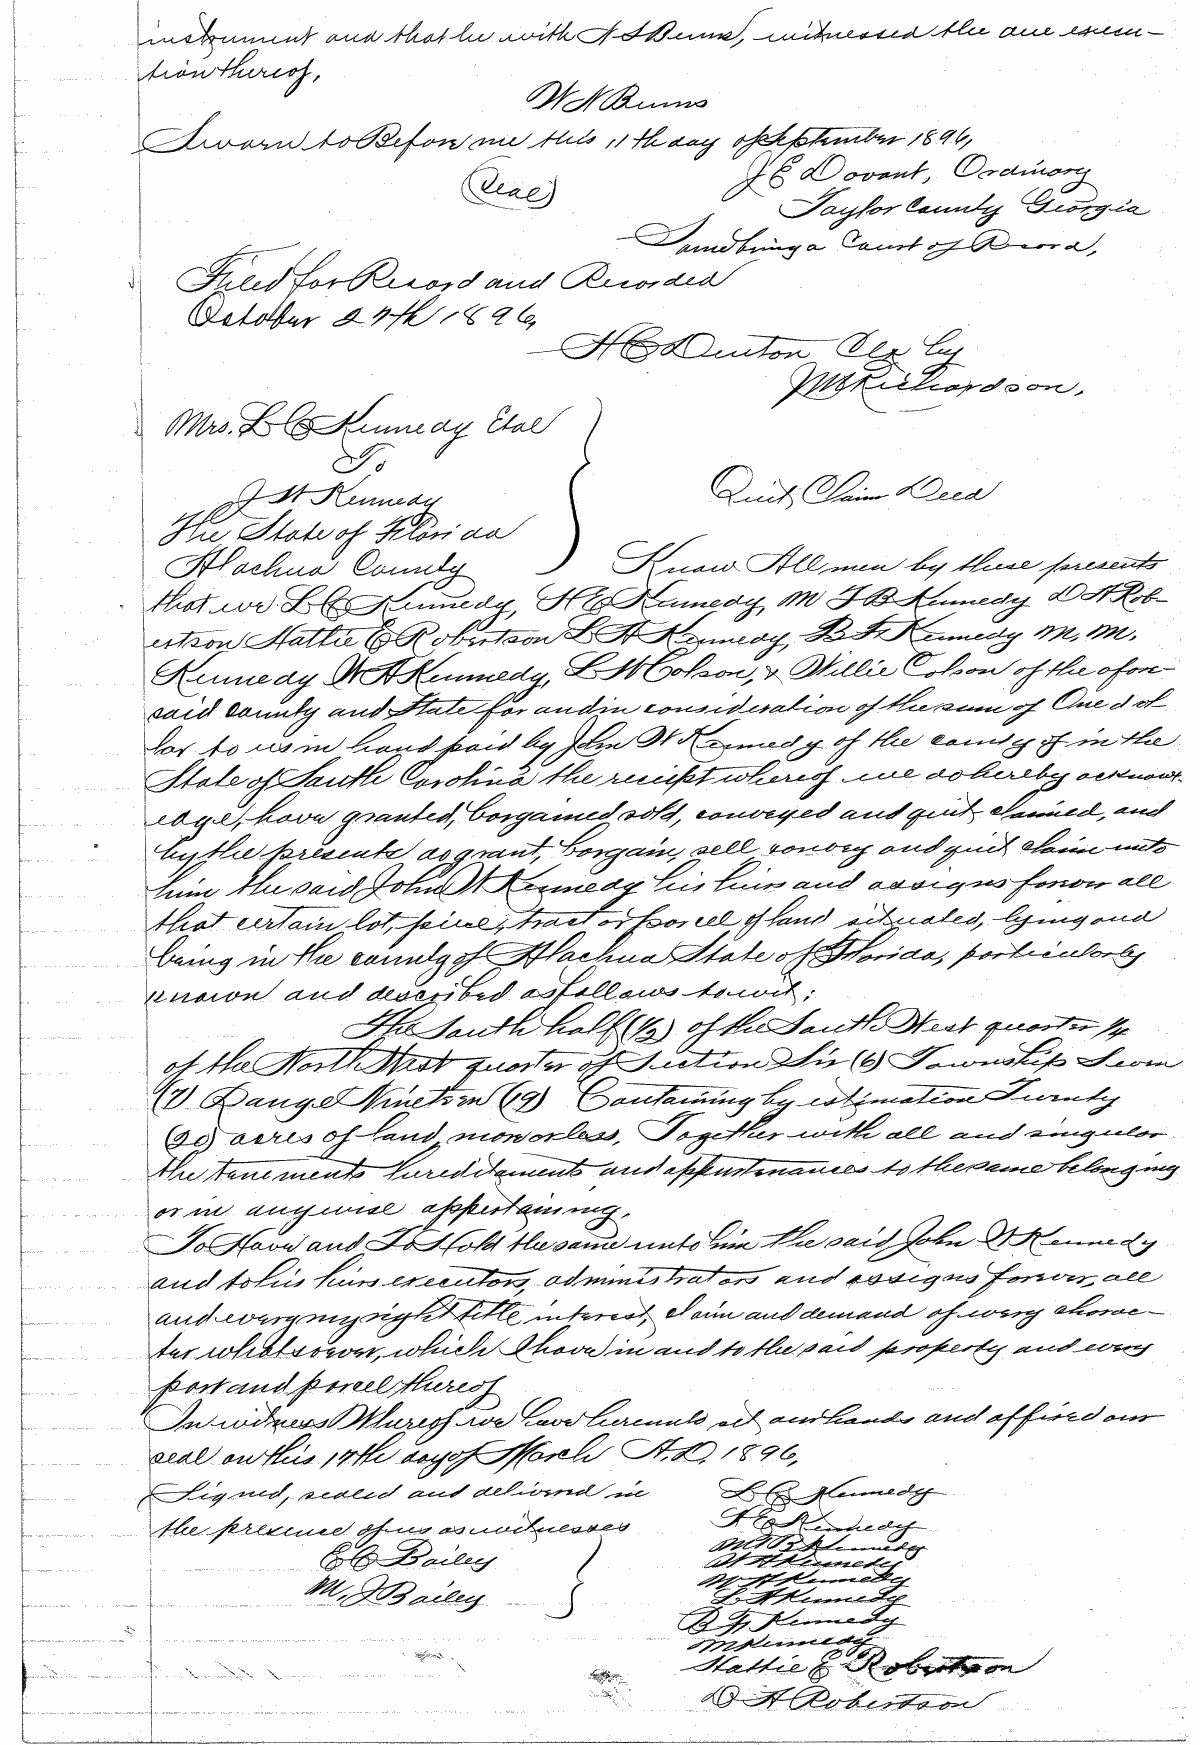 instrument and that he with A S Burns, witnessed the due execu-
tion thereof,
W N Burns
Sworn to Before me this 11th day of September 1896,
(Seal)
J E Dovant, Ordinary
Taylor County Georgia
Same being a Court of Record,
Filed for Record and Recorded
October 27th 1896,
H C Denton Clk by
Richardson,
Mrs. L C Kennedy Etal
To
J W Kennedy
Quit Claim Deed
The State of Florida
Alachua County
Know All men by these presents
that we L C Kennedy, H C Kennedy, M J B Kennedy D A Rob-
ertson Hattie E Robertson L A Kennedy, B F Kennedy M. M.
Kennedy W A Kennedy, L W Colson, & Willie Colson of the afore-
said county and State for and in consideration of the sum of One dol
lar to us in hand paid by John W Kennedy of the county of in the
State of South Carolina the receipt whereof we do hereby acknowl-
edge, have granted, bargained, sold, conveyed and quit claimed, and
by the presents do grant, bargain, sell convey and quit claim unto
him the said John W Kennedy his heirs and assigns forever all
that certain lot, piece, tract or parcel of land situated, lying and
being in the county of Alachua State of Florida, particularly
known and described as follows to wit:
The South half (1/2) of the South West quarter 1/4
of the North West quarter of Section Six (6) Township Seven
(7) Range Nineteen (19) Containing by estimation Twenty
(20) acres of land, more or less, Together with all and singular
the tenements hereditaments and appurtenances to the same belonging
or in anywise appertaining,
To Have and To Hold the same unto him the said John W Kennedy
and to his heirs executors, administrators and assigns forever, all
and every my right title, interest, claim and demand of every charac-
ter whatsoever, which I have in and to the said property and every
part and parcel thereof
In witness Whereof we have hereunto set our hands and affixed our
seal on this 17th day of March A.D. 1896,
Signed, sealed and delivered in
the presence of us as witnesses
E C Bailey
M. J Bailey
L C Kennedy
H C Kennedy
M J B Kennedy
W A Kennedy
M A Kennedy
L A Kennedy
B F Kennedy
M Kennedy
Hattie E Robertson
D A Robertson